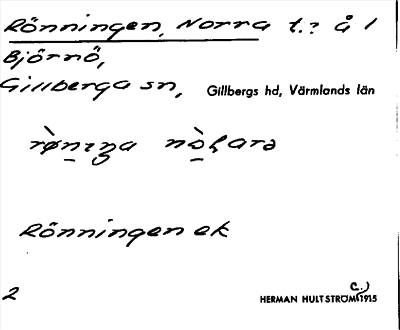 Rönningen, Norra t.? å 1
Björnö,
Gillberga sn, Gillbergs hd, Värmlands län
Rönningen ek
2 HERMAN HULTSTRÖM 1915
c.)